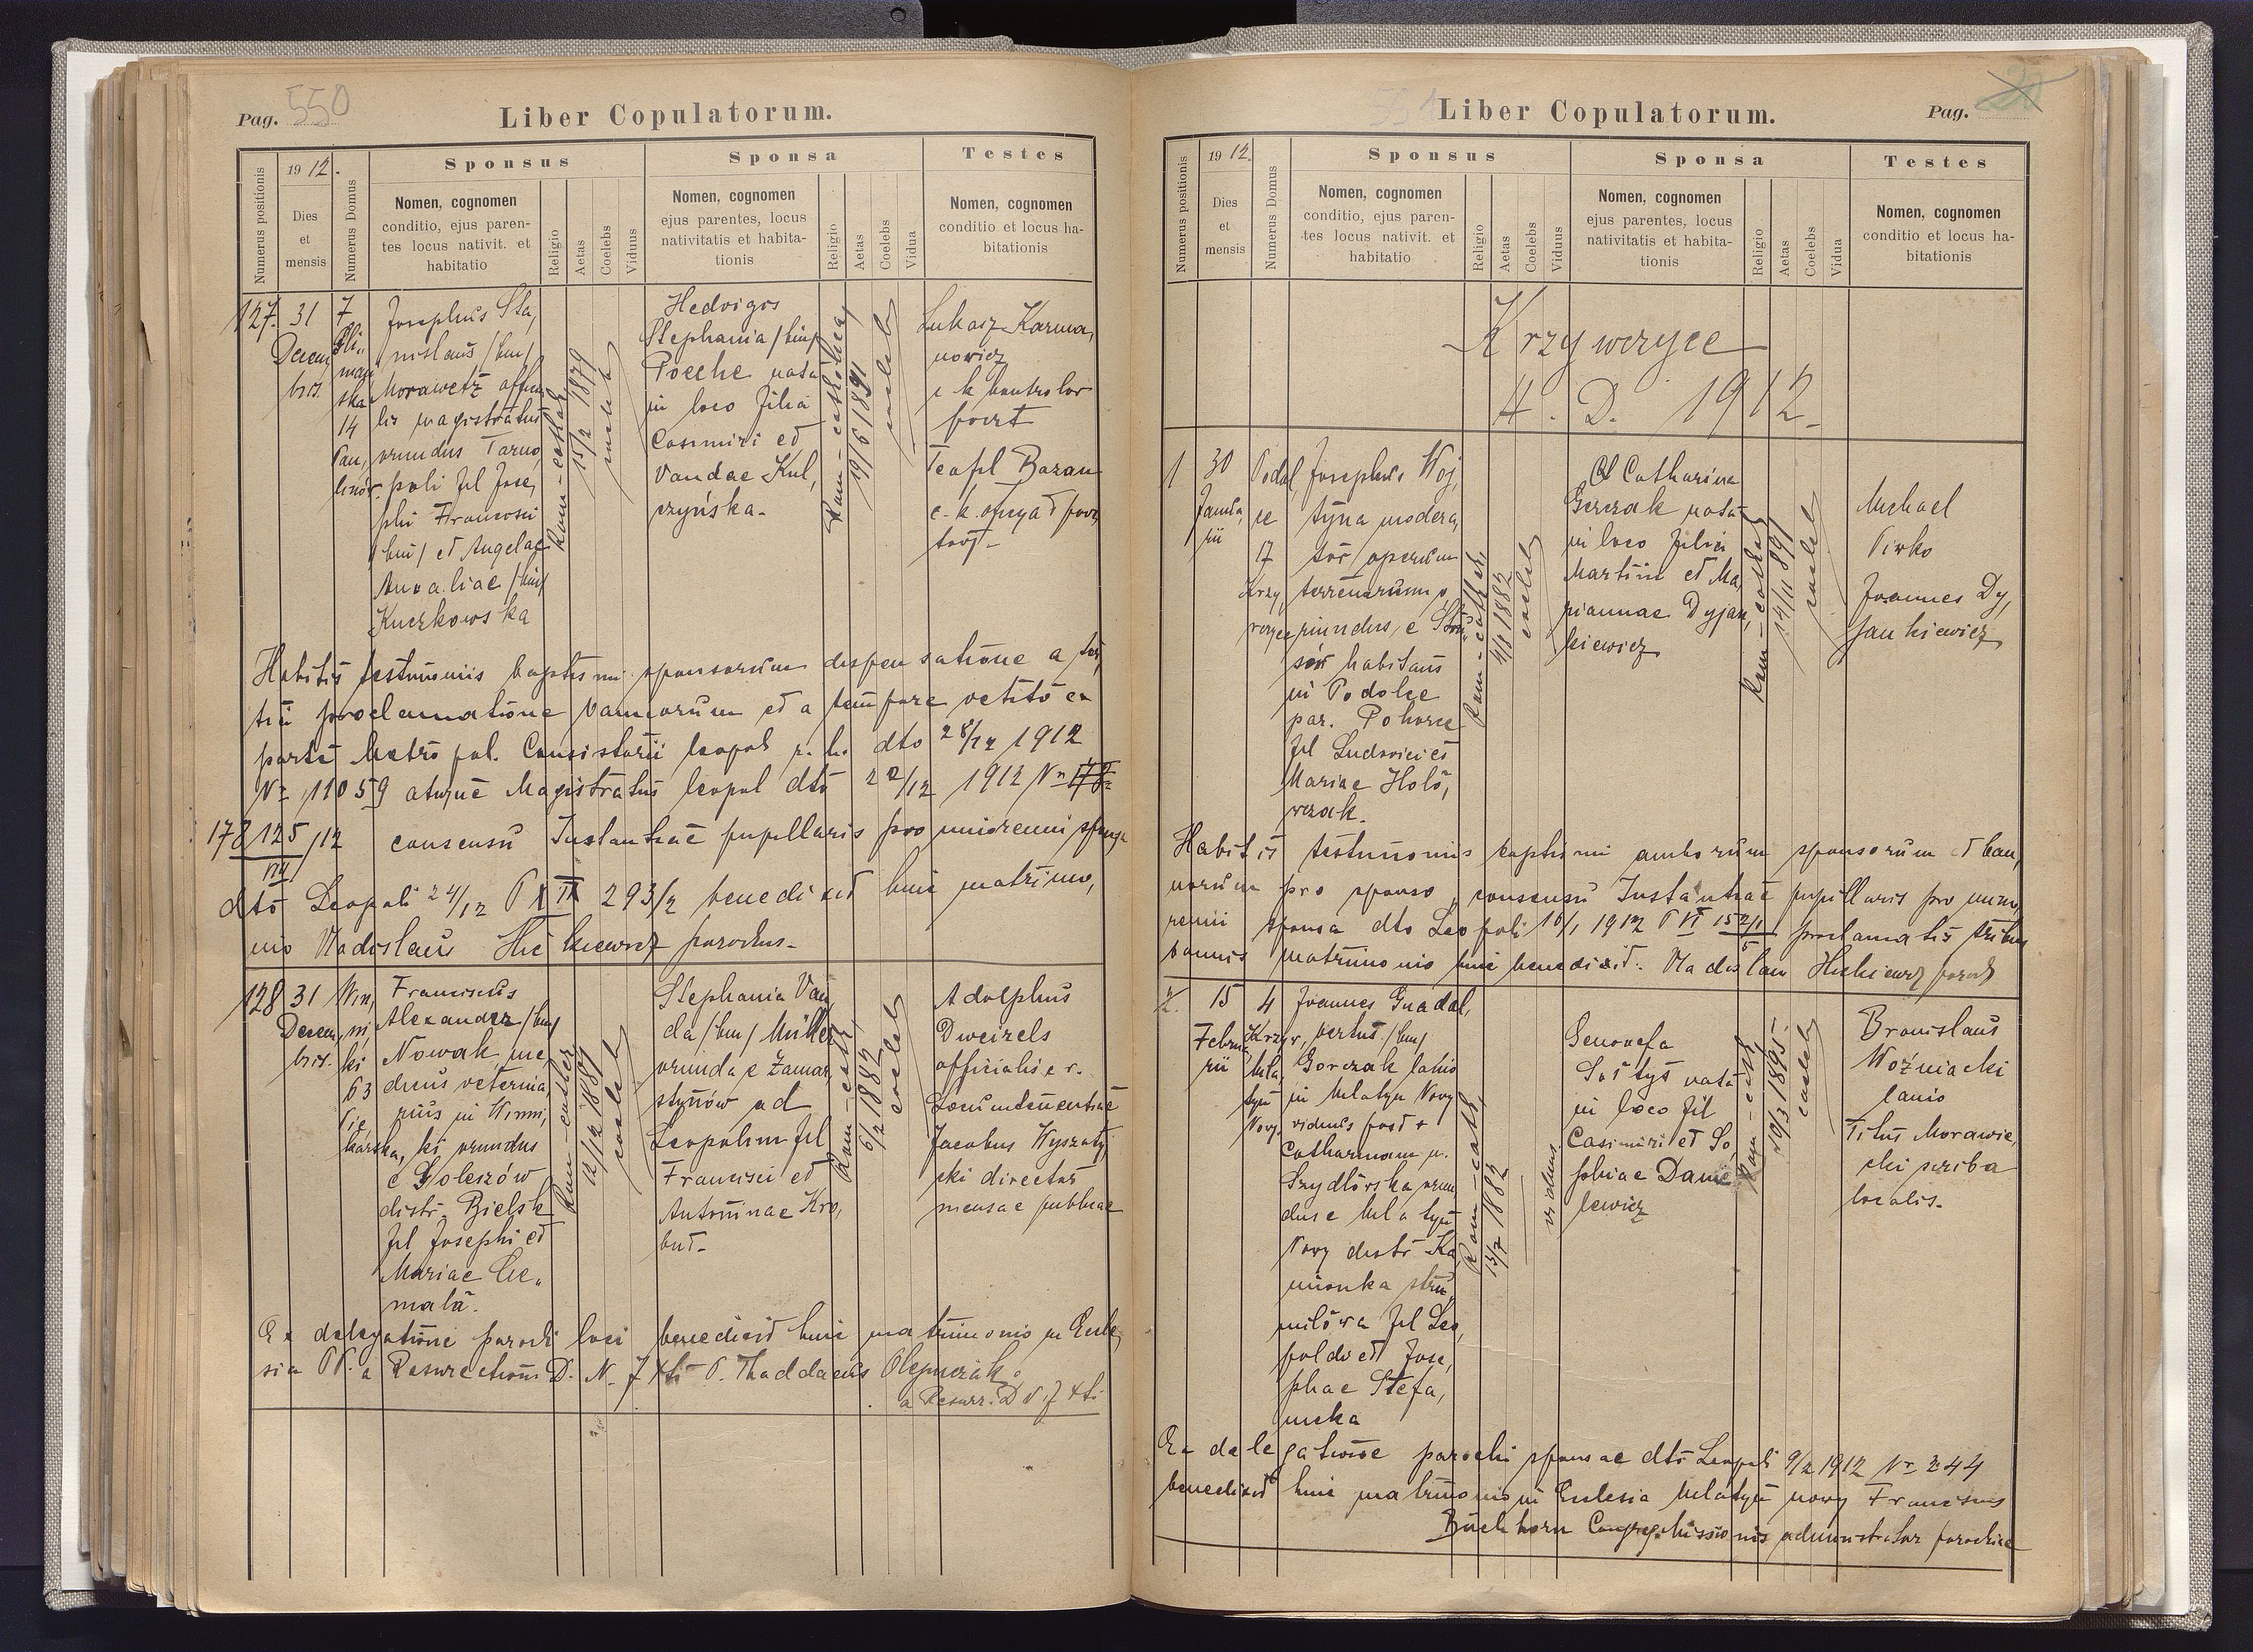 Pag. 550
Liber Copulatorum.
Numerus positionis
1912.
Dies
et
mensis
Numerus Domus
Sponsus
Nomen, cognomen
conditio, ejus paren-
tes locus nativit. et
habitatio
Religio
Aetas
Coelebs
Viduus
Sponsa
Nomen, cognomen
ejus parentes, locus
nativitatis et habita-
tionis
Religio
Aetas
Coelebs
Vidua
Testes
Nomen, cognomen
conditio et locus ha-
bitationis
127.
31
Decem,
bris.
7
man
ska
14
Josephus Sta,
nislaus /bin/
Morawetz
lis magistratus
oriundus Tarno,
poli fil Jose,
phi Francisci
/bin/ et Angelae
/bin/
Kuczkowska
15/2 1879
Hedvigis
Stephania /bin/
Poeche nata
in loco filia
Casimiri et
Vandae Kul,
czyńska-
Rom-catholica
19/6 1891
coeleb
Lukasz Karma,
nowicz
c k kontrolor
poczt
Teofil Bazan
c. k.
Habitis testimoniis baptismi sponsorum dispensatione a ter,
tia proclamatione bannorum et a tempore vetito ex
parte Metropol. Consistorii leopol r. l. dto 28/12 1912
Nr 11059 atque Magistratus leopol dto 22/12 1912 Nr
178125/12 consensu Instantiae pupillaris pro minorenni sponsa
VIII
dto Leopoli 24/12 293/2 benedixit huic matrimo,
nio Vladislaus parochus-
128
31
Decem,
bris.
Win,
ni,
ki
63
Pie,
karska,
Franciscus
Alexander /bin/
Nowak, me,
dicus veterina,
rius in Winni,
ki oriundus
e Goleszów
distr. Bielsk
fil Josephi et
Mariae Cie,
mala.
Rom-cathol
12/12 1887
coeleb
Stephania Van,
da /bin/ Müller
oriunda e Zamar,
stynów ad
Leopolim fil
Francisci et
Antoninae Kro,
but-
Rom-cath,
6/2 1882
coeleb
Adolphus
Dweizels
officialis e r.
Jacobus Wyszaty,
cki director
mensae publicae
Ex delegatione parochi loci benedixit huic matrimonio in Eccle,
sia PP. a Resurectioni D. N. J Xti P. Thaddaeus Olejniczak
a Resurr. D N J Xti
Liber Copulatorum.
Pag.
Numerus positionis
1912.
Dies
et
mensis
Numerus Domus
Sponsus
Nomen, cognomen
conditio, ejus paren-
tes locus nativit. et
habitatio
Religio
Aetas
Coelebs
Viduus
Sponsa
Nomen, cognomen
ejus parentes, locus
nativitatis et habita-
tionis
Religio
Aetas
Coelebs
Vidua
Testes
Nomen, cognomen
conditio et locus ha-
bitationis
Krzywczyce
A. D. 1912-
1
30
Janua,
rii
Podol,
ce
17
Krzy,
wczyce
Josephus Woj,
tyna modera,
tor operum
terrenarum o,
riundus e
habitans
in Podolce
par. Pohorce
fil Ludovici et
Mariae Holo,
wczak.
Rom-cath
4/4 1882
coeleb
Catharina
Gorczak nata
in loco filia
Martini et Ma,
riannae Dyjan,
kiewicz
Rom-cathol
14/11 1891
coeleb
Michael
Pirko
Joannes Dy,
jankiewicz
Habitis testimoniis baptismi amborum sponsorum et ban,
norum pro sponso, consensu Instantiae pupillaris pro mino,
renni sponsa dto Leopoli 16/1 1912 P VI 152/1 proclamatis tribus
5
bannis matrimonio huic benedixit. Vladislaus paroch
2.
15
Februa,
rii
4
Krzyw,
Mila,
tyn
Nowy
Joannes Guadal,
bertus /bin/
Gorczak lanio
in Milatyn Nowy
viduus post +
Catharinam n.
Szydlowska oriun
dus e Milatyn
Nowy distr Ka
mionka stru,
milowa fil Leo,
poldi et Jose,
phae Stefa,
nicka
Rom-cath,
13/7 1882
viduus
Genovefa
Soltys nata
in loco fil
Casimiri et So,
phiae Danie
lewicz
Rom-cath
10/3 1895.
coeleb
Bronislaus
Woźniacki
lanio
Titus Morawie,
cki scriba
localis-
Ex delegatione parochi sponsae dto Leopoli 9/2 1912 Nr 244
benedixit huic matrimonio in Ecclesia Milatyn nowy Franciscus
Buchhorn Congreg. Missionis administrator parochiae